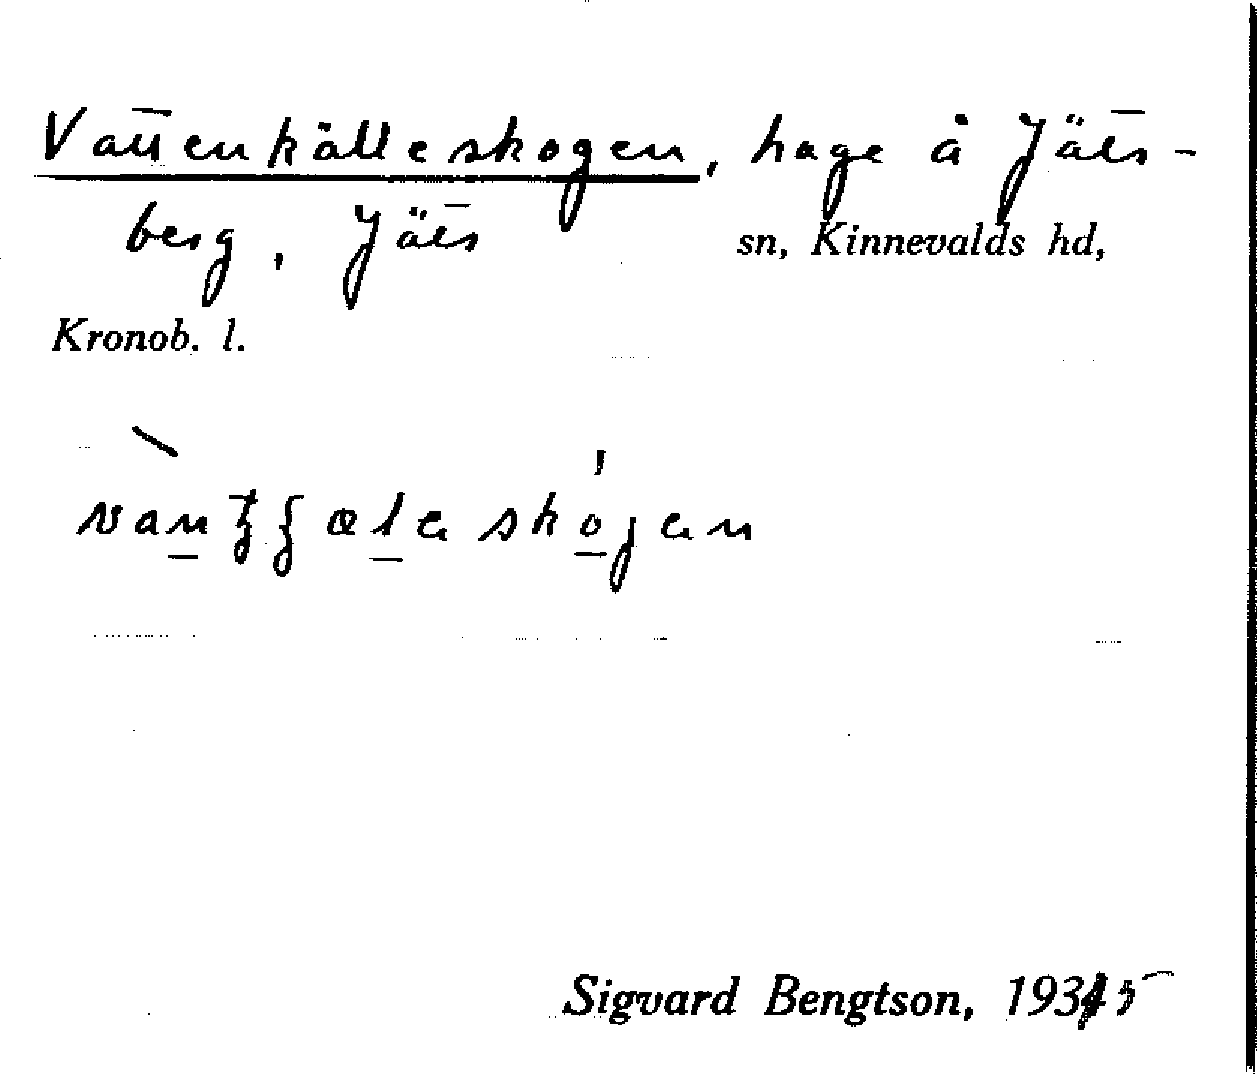 Vattenkälleskogen, hage å Jäts-
berg, Jäts sn, Kinnevalds hd,
Kronob. l.
Sigvard Bengtson, 1935